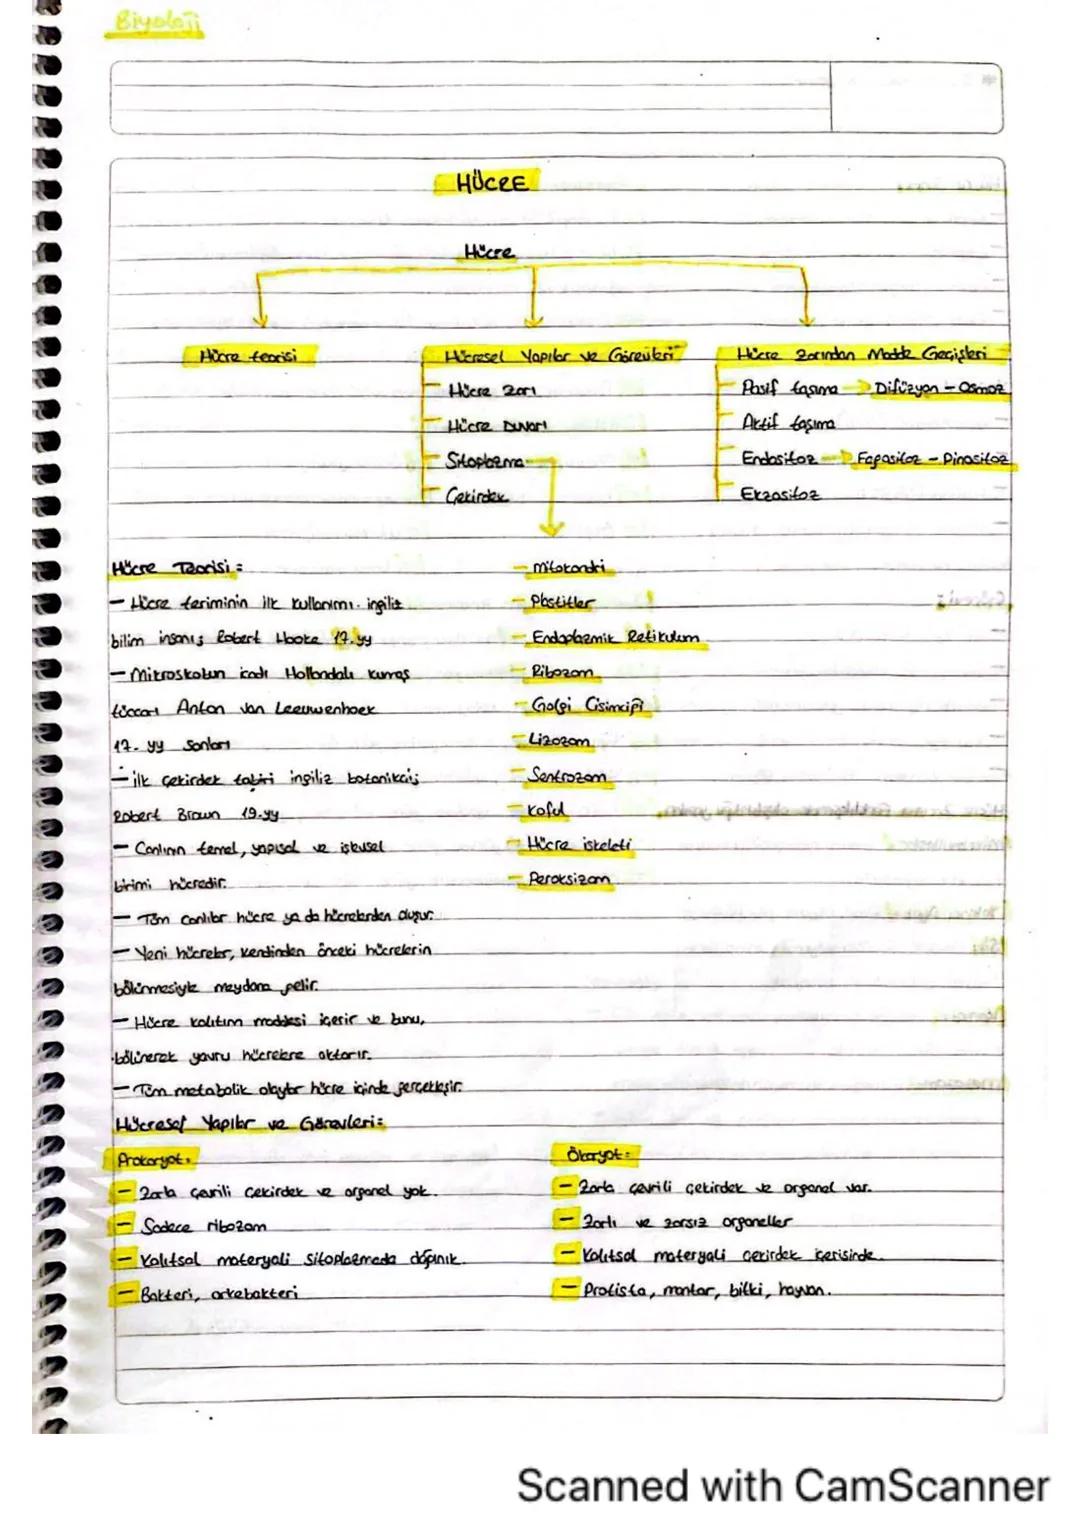 Biyoloji
HÜCRE
Hücre
Hücre teorisi
Hücresel Yapılar ve Görevleri
Hücre Zarından Madde Geçişleri
Hücre zarı
Pasif taşıma Difüzyon - Osmoz
Hücre Duvarı
Aktif taşıma
Sitoplazma
Endositoz Fagositoz - Pinositoz
Çekirdek
Ekzositoz
Hücre Teorisi:
- Mitokondri
- Hücre teriminin ilk kullanımı. ingiliz
- Plastitler
bilim insanı; Robert Hooke 17.yy
- Endoplazmik Retikulum
- Mikroskobun icadı Hollandalı kumaş
- Ribozom
tüccarı Anton Van Leeuwenhoek
- Golgi Cisimciği
17. yy sonları
- Lizozom
- ilk çekirdek tabiri ingiliz botanikçi;
- Sentrozom
Robert Brown 19.yy
- Koful
- Canlının temel, yapısal ve işlevsel
- Hücre iskeleti
birimi hücredir.
- Peroksizom
- Tüm canlılar hücre ya da hücrelerden oluşur.
- Yeni hücreler, kendinden önceki hücrelerin
bölünmesiyle meydana gelir.
- Hücre kalıtım maddesi içerir ve bunu,
bölünerek yavru hücrelere aktarır.
- Tüm metabolik olaylar hücre içinde gerçekleşir.
Hücresel Yapılar ve Görevleri:
Prokaryot:
Ökaryot:
- Zarla çevrili çekirdek ve organel yok.
- Zarla çevrili çekirdek ve organel var.
- Sadece ribozom
- Zarlı ve zarsız organeller
- Kalıtsal materyali sitoplazmada dağınık.
- Kalıtsal materyali çekirdek içerisinde.
- Bakteri, arkebakteri
- Protista, mantar, bitki, hayvan.
Scanned with CamScanner